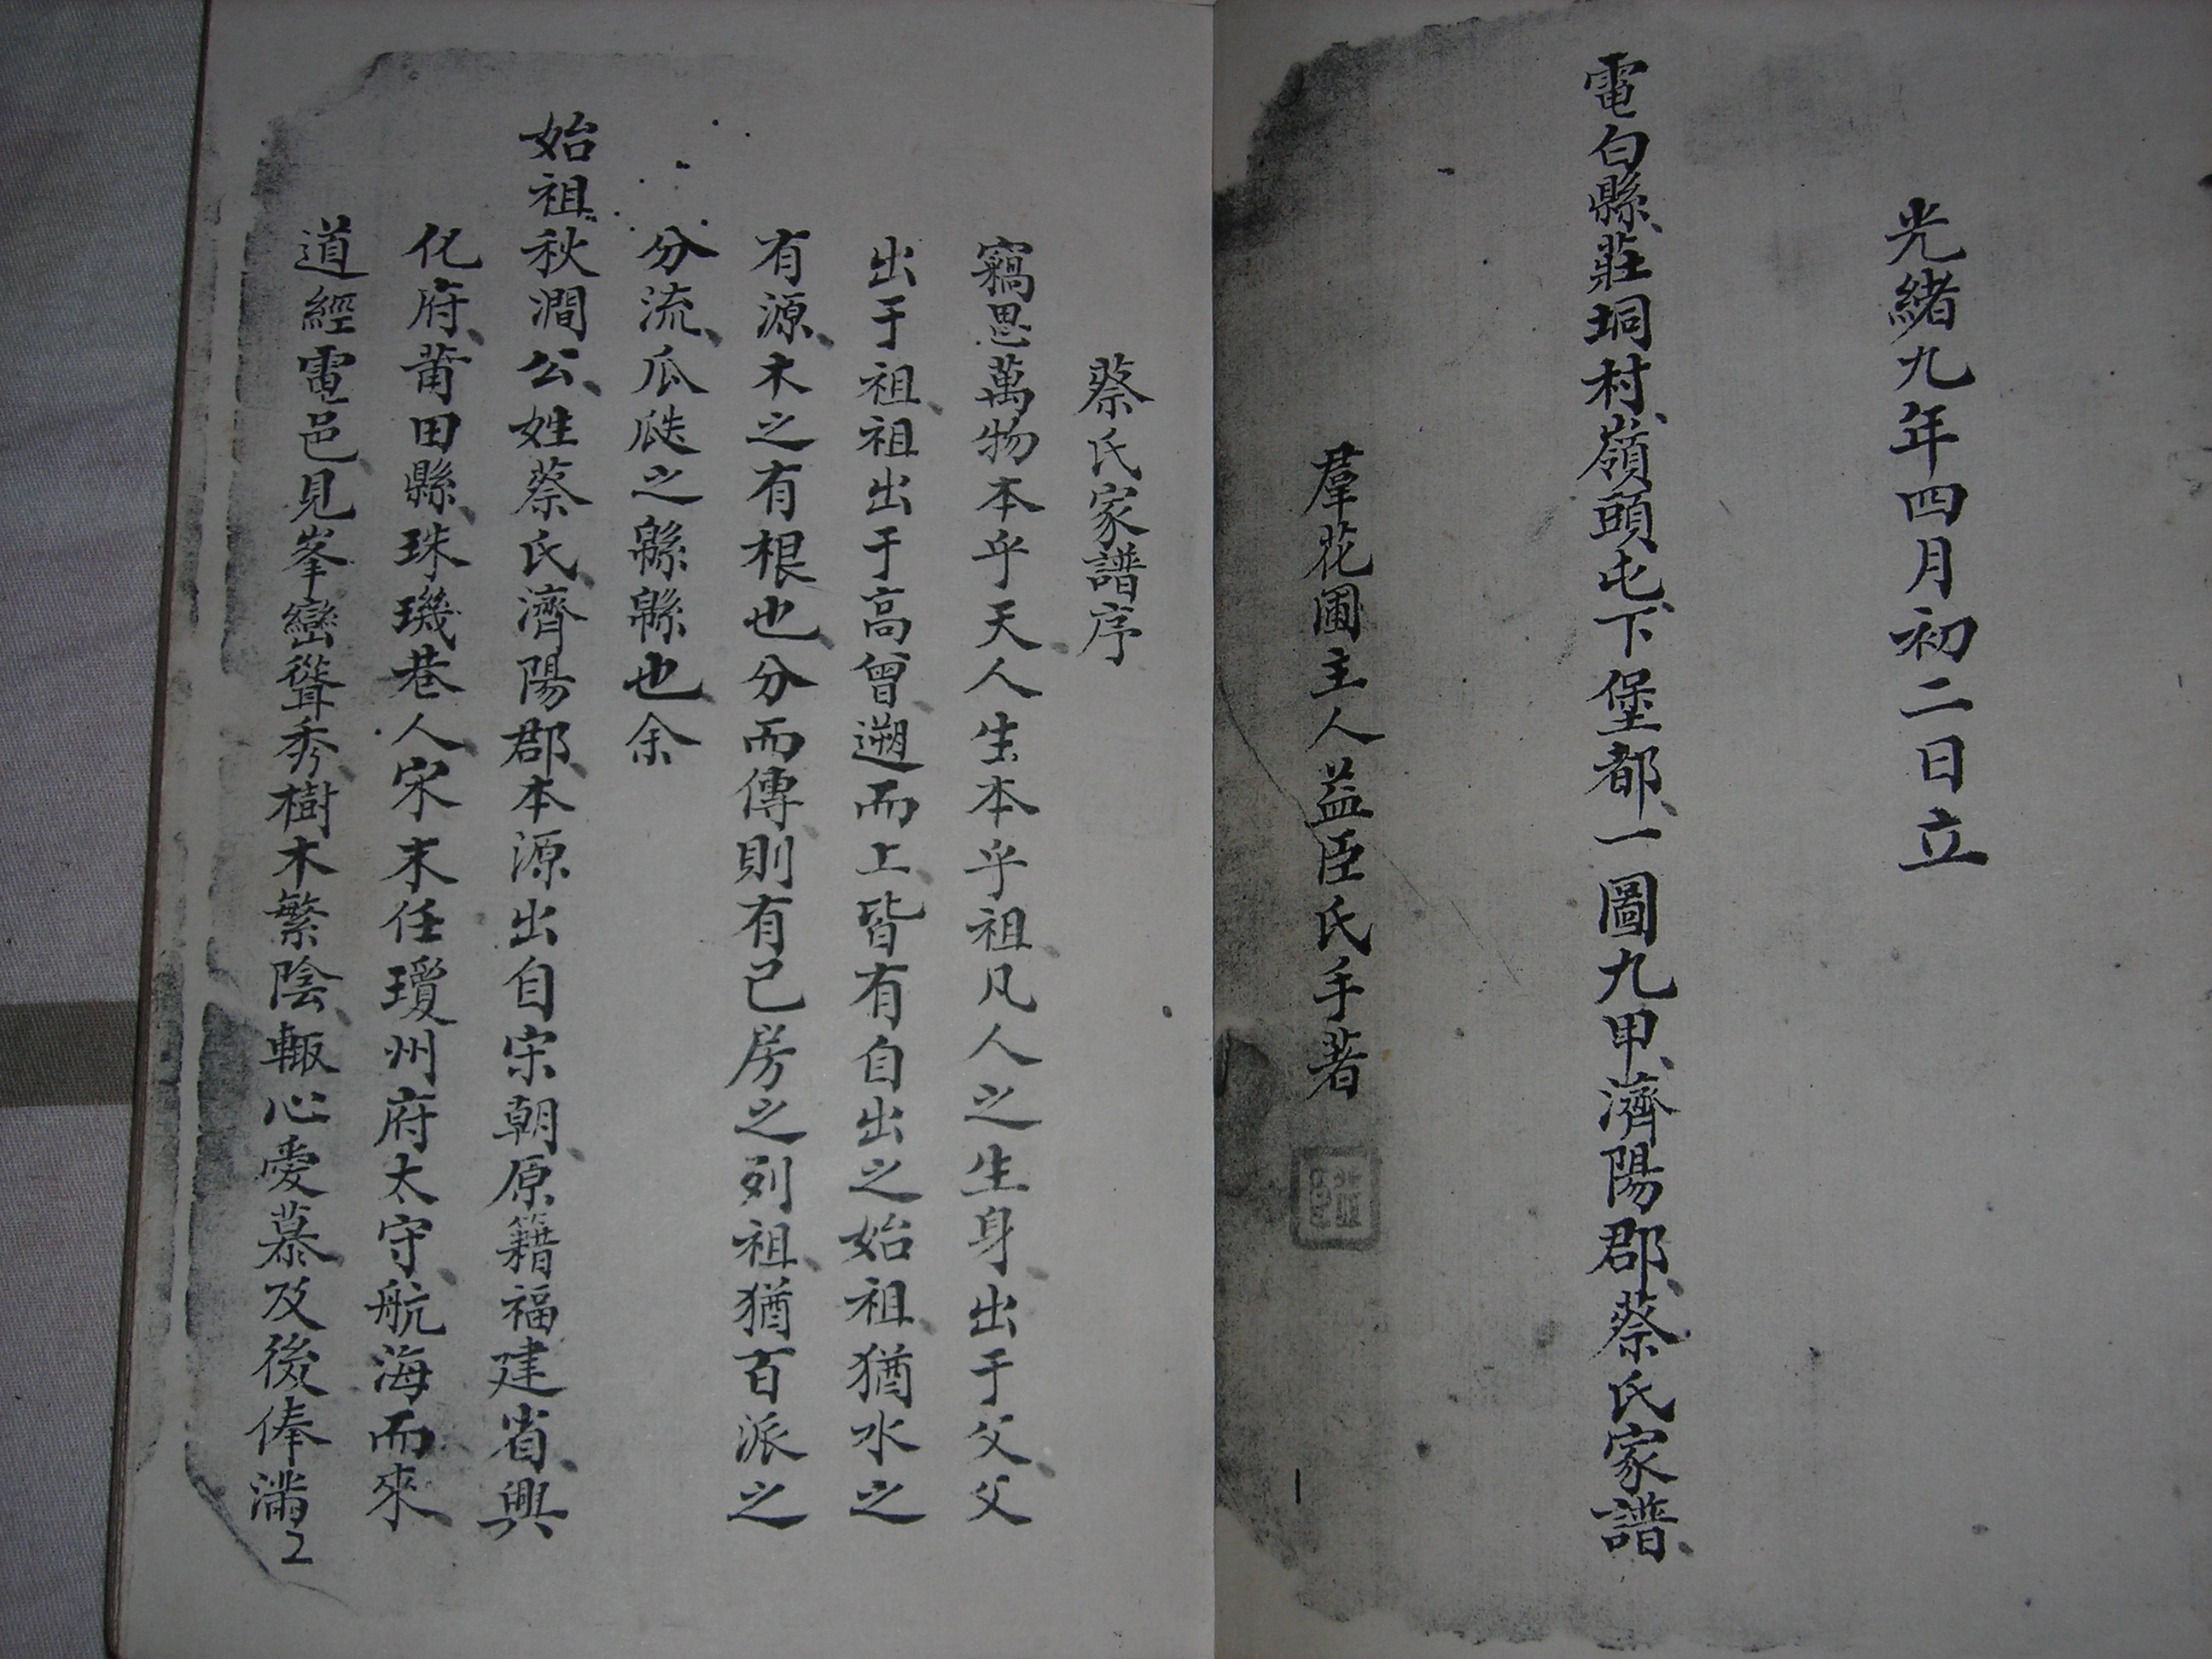 光緒九年四月初二日立
電白縣、莊垌村、嶺頭屯、下堡都、一圖九甲、濟陽郡、蔡氏家譜、
羣花圃主人益臣氏手著
益臣
1
蔡氏家譜序
竊思萬物本乎天人生本乎祖、凡人之生身、出于父、父
出于祖、祖出于高曾、遡而上、皆有自出之始祖、猶水之
有源、木之有根也、分而傳、則有己房之列祖、猶百派之
分流、瓜瓞之緜緜也、余
始祖秋澗公、姓蔡氏、濟陽郡、本源出自宋朝、原籍福建省、興
化府、莆田縣、珠璣巷人、宋末任瓊州府太守、航海而來、
道經電邑、見峯巒聳秀、樹木繁陰、輙心愛慕、及後俸滿
2